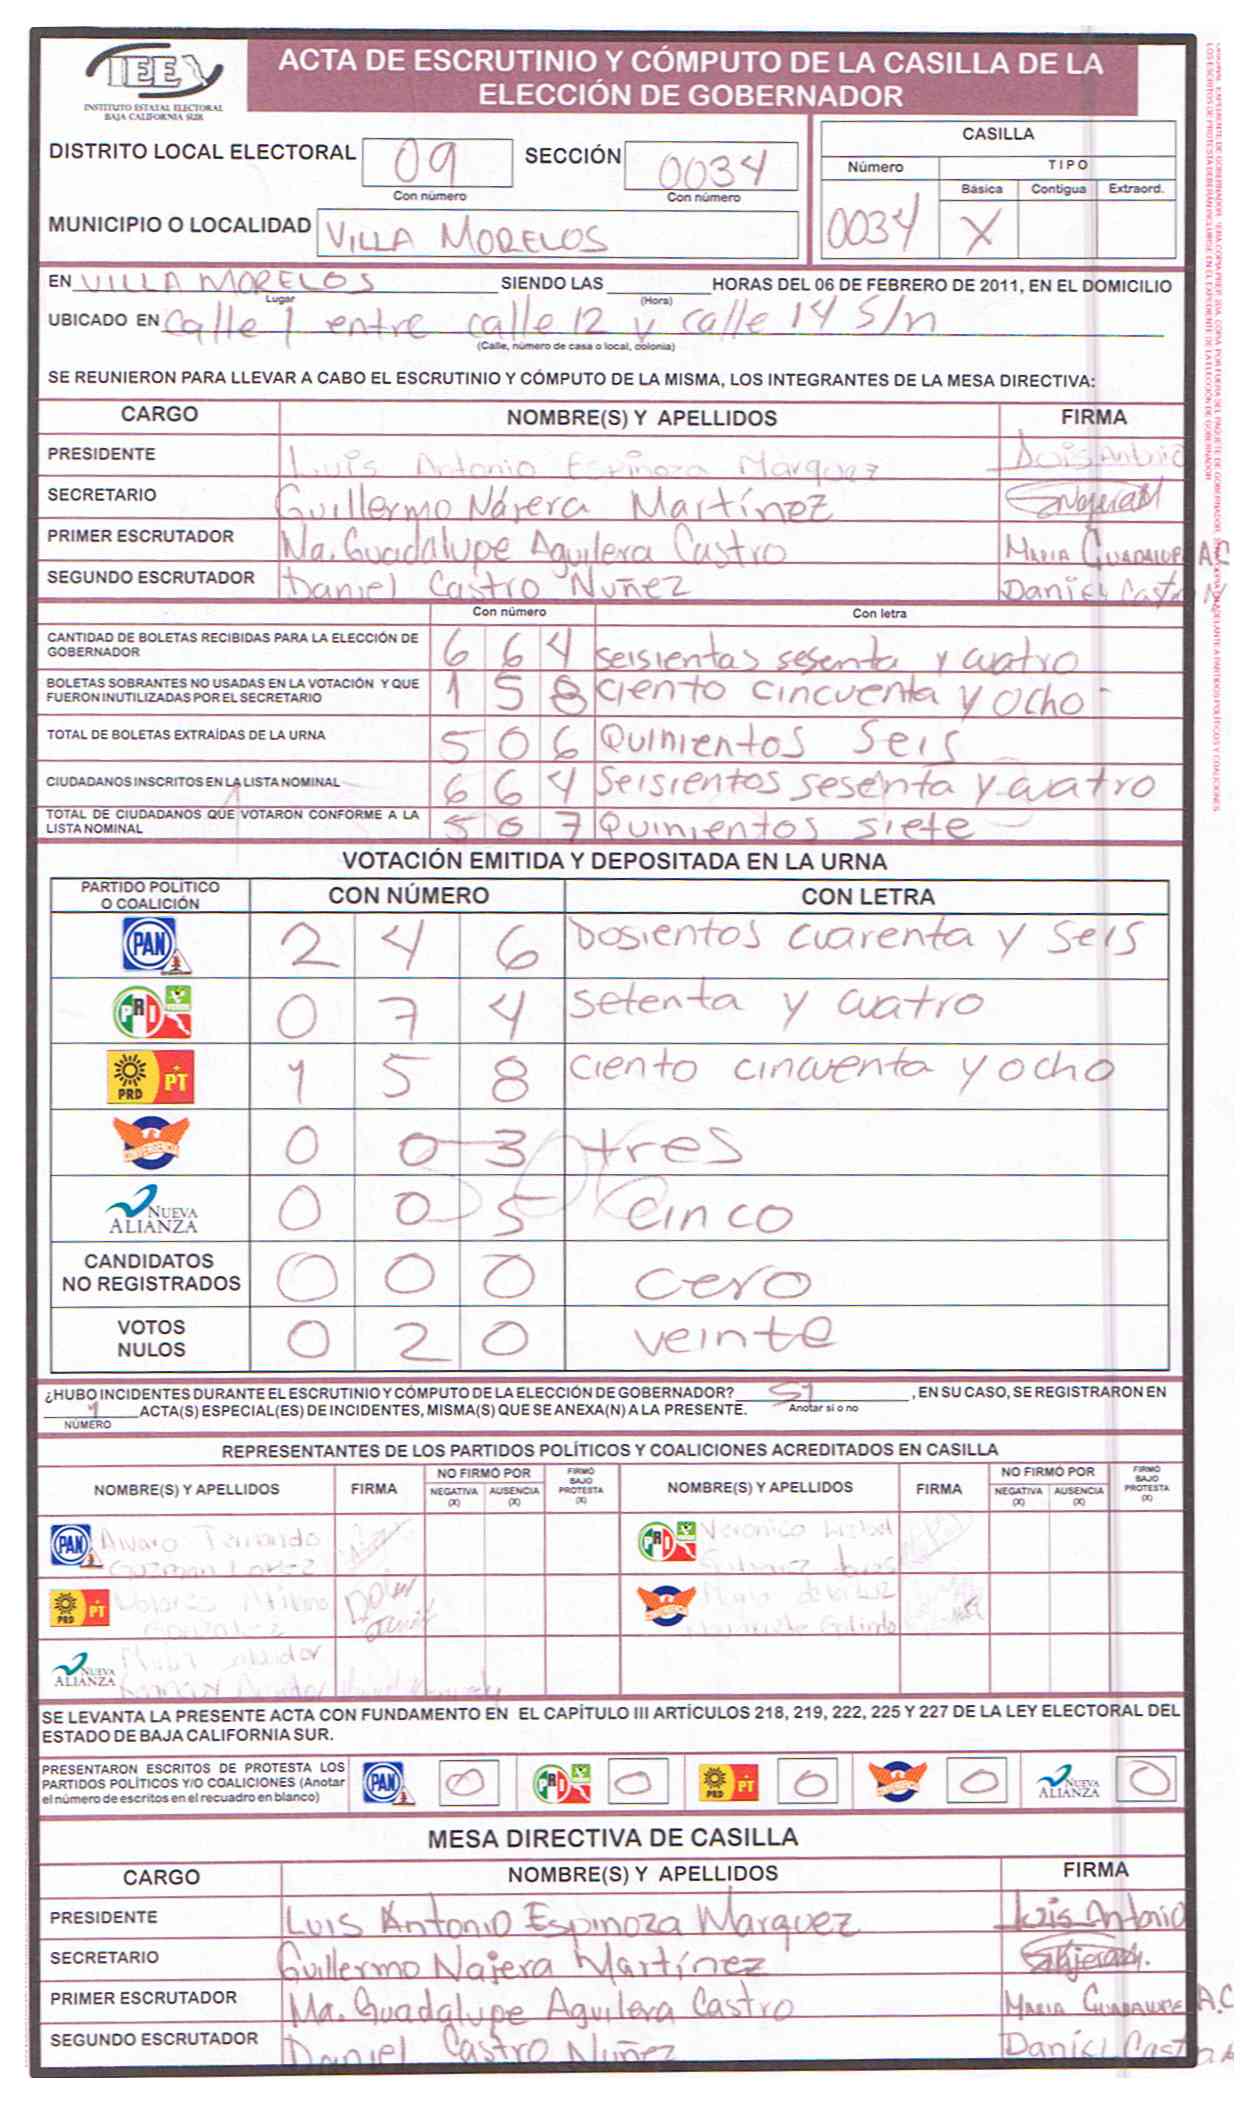 IEE
INSTITUTO ESTATAL ELECTORAL
BAJA CALIFORNIA SUR
ACTA DE ESCRUTINIO Y CÓMPUTO DE LA CASILLA DE LA
ELECCIÓN DE GOBERNADOR
DISTRITO LOCAL ELECTORAL 09 SECCIÓN 0034
Con número Con número
MUNICIPIO O LOCALIDAD VILLA MORELOS
CASILLA
Número TIPO
Básica Contigua Extraord.
0034 X
EN VILLA MORELOS SIENDO LAS HORAS DEL 06 DE FEBRERO DE 2011, EN EL DOMICILIO
Lugar (Hora)
UBICADO EN Calle 1 entre calle 12 y calle 14 S/n
(Calle, número de casa o local, colonia)
SE REUNIERON PARA LLEVAR A CABO EL ESCRUTINIO Y CÓMPUTO DE LA MISMA, LOS INTEGRANTES DE LA MESA DIRECTIVA:
CARGO NOMBRE(S) Y APELLIDOS FIRMA
PRESIDENTE Luis Antonio Espinoza Marquez Luis Antonio
SECRETARIO Guillermo Nájera Martínez
PRIMER ESCRUTADOR Ma. Guadalupe Aguilera Castro MARIA GUADALUPE A.C
SEGUNDO ESCRUTADOR Daniel Castro Nuñez Daniel Castro
Con número Con letra
CANTIDAD DE BOLETAS RECIBIDAS PARA LA ELECCIÓN DE
GOBERNADOR 6 6 4 seisientas sesenta y cuatro
BOLETAS SOBRANTES NO USADAS EN LA VOTACIÓN Y QUE
FUERON INUTILIZADAS POR EL SECRETARIO 1 5 8 ciento cincuenta y ocho
TOTAL DE BOLETAS EXTRAÍDAS DE LA URNA 5 0 6 Quinientos Seis
CIUDADANOS INSCRITOS EN LA LISTA NOMINAL 6 6 4 Seisientos sesenta y cuatro
TOTAL DE CIUDADANOS QUE VOTARON CONFORME A LA
LISTA NOMINAL 5 0 7 Quinientos siete
VOTACIÓN EMITIDA Y DEPOSITADA EN LA URNA
PARTIDO POLÍTICO
O COALICIÓN CON NÚMERO CON LETRA
PAN 2 4 6 Dosientos cuarenta y seis
PRI 0 7 4 setenta y cuatro
PRD PT 1 5 8 ciento cincuenta y ocho
CONVERGENCIA 0 0 3 tres
NUEVA ALIANZA 0 0 5 cinco
CANDIDATOS
NO REGISTRADOS 0 0 0 cero
VOTOS
NULOS 0 2 0 veinte
¿HUBO INCIDENTES DURANTE EL ESCRUTINIO Y CÓMPUTO DE LA ELECCIÓN DE GOBERNADOR? SI , EN SU CASO, SE REGISTRARON EN
1 ACTA(S) ESPECIAL(ES) DE INCIDENTES, MISMA(S) QUE SE ANEXA(N) A LA PRESENTE. Anotar si o no
NÚMERO
REPRESENTANTES DE LOS PARTIDOS POLÍTICOS Y COALICIONES ACREDITADOS EN CASILLA
NOMBRE(S) Y APELLIDOS FIRMA NO FIRMÓ POR NEGATIVA (X) AUSENCIA (X) FIRMÓ BAJO PROTESTA (X) NOMBRE(S) Y APELLIDOS FIRMA NO FIRMÓ POR NEGATIVA (X) AUSENCIA (X) FIRMÓ BAJO PROTESTA (X)
PAN Alvaro PRI Veronica
Guzman
PRD PT
Gonzalez
NUEVA ALIANZA
SE LEVANTA LA PRESENTE ACTA CON FUNDAMENTO EN EL CAPÍTULO III ARTÍCULOS 218, 219, 222, 225 Y 227 DE LA LEY ELECTORAL DEL
ESTADO DE BAJA CALIFORNIA SUR.
PRESENTARON ESCRITOS DE PROTESTA LOS
PARTIDOS POLÍTICOS Y/O COALICIONES (Anotar
el número de escritos en el recuadro en blanco)
PAN 0 PRI 0 PRD PT 0 0 NUEVA ALIANZA 0
MESA DIRECTIVA DE CASILLA
CARGO NOMBRE(S) Y APELLIDOS FIRMA
PRESIDENTE Luis Antonio Espinoza Marquez Luis Antonio
SECRETARIO Guillermo Najera Martínez
PRIMER ESCRUTADOR Ma. Guadalupe Aguilera Castro MARIA GUADALUPE A.C
SEGUNDO ESCRUTADOR Daniel Castro Nuñez Daniel Castro